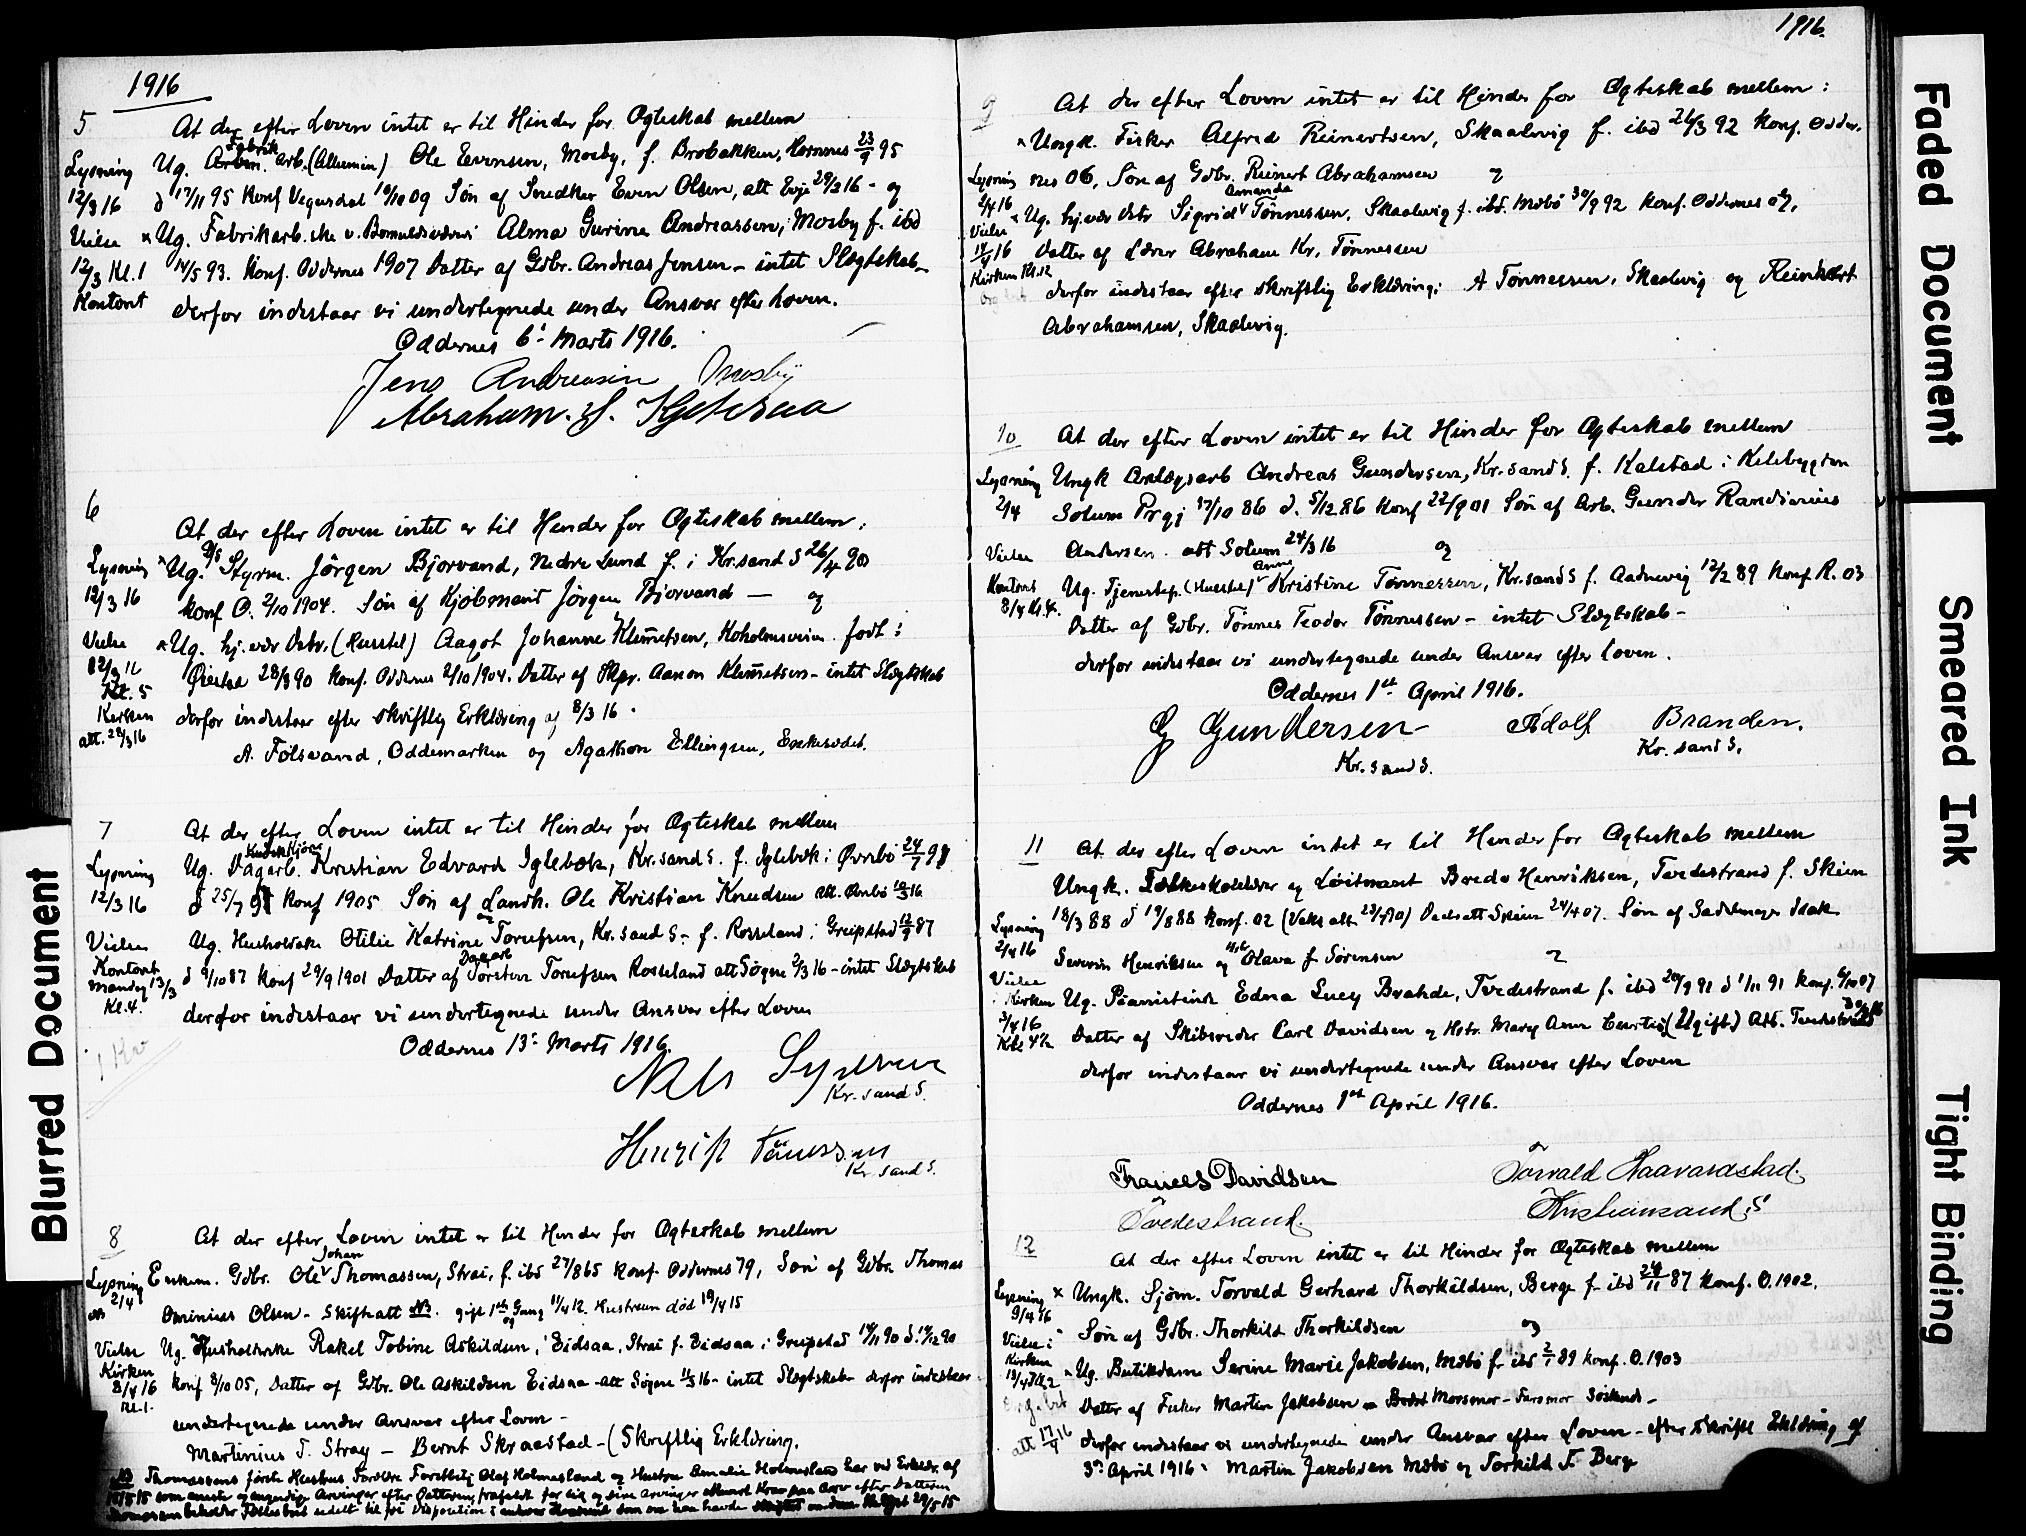 1916
5 At der efter Loven intet er til Hinder for Ogteskab mellem
Lysning Ug. Fabrik arb. (Alluminium) Ole Evensen, Mosby, f. Brobakken, Hornnes 23/9 95
12/3 16 d 17/11 95 konf Vegusdal 10/10 09 Søn af Snedker Even Olsen, att Evje 29/2 16 - og
Vielse × Ug. Fabrikarb.ske v. Bomuldsvæveri Alma Gurine Andreassen, Mosby f. ibd
12/3 Kl. 1 14/5 93. Konf. Oddernes 1907 Datter af Gdbr. Andreas Jensen - intet Slægtskab -
Kontoret derfor indestaar vi undertegnede under Ansvar efter Loven.
Oddernes 6' Marts 1916.
Jens Andreasen Mosby
Abraham
6 At der efter Loven intet er til Hinder for Ogteskab mellem:
Lysning × Ug. Styrm. Jörgen Bjorvand, Nedre Lund f. i Kr.sand S 26/4 90
12/3 16 konf O. 2/10 1904. Søn af Kjøbmand Jörgen Bjorvand — og
Vielse × Ug. hj.vær Dtr. (Husstel) Aagot Johanne Klemetsen, Kokolmsveien født i
12/3 16 Øiestad 28/3 90 konf. Oddernes 2/10 1904. Datter af Skpr. Aanon Klemetsen - intet Slægtskab
Kl. 5
Kirken derfor indestaar efter skriftlig Erklæring af 8/3 16.
att. 28/3 16 A. Fölsvand, Oddemarken og Agathon Ellingsen,
7 At der efter Loven intet er til Hinder for Ogteskab mellem
Lysning Ug. Dagarb. Kristian Edvard Iglebæk, Kr.sand S. f. Iglebæk i Øvrebø 24/7 91
12/3 16 d 25/7 91 konf 1905 Søn af Landh. Ole Kristian Knudsen att. Øvrebø 10/3 16
og
Vielse Ug. Husholdske Otilie Katrine Torufsen, Kr.sand S. - f. Rosseland i Greipstad 12/9 87
Kontoret
Mandag 13/3 d 9/10 87 konf 29/9 1901 Datter af Dagarb Torsten Torufsen Rosseland att Søgne 2/3 16 - intet Slægtskab
Kl. 4. derfor indestaar vi undertegnede under Ansvar efter Loven
Oddernes 13' Marts 1916.
Nels
Kr. sand S.
Henrik Tönessen
Kr sand S.
8 At der efter Loven intet er til Hinder for Ogteskab mellem
Lysning Enkem. Gdbr. Ole Johan Thomassen, Strai, f. ibd 27/8 65 konf. Oddernes 79, Søn af Gdbr. Thomas
2/4 Ominius Olsen - Skifteatt NB. gift 1ste Gang 11/4 12. Hustruen død 19/4 15
og
Vielse Ug. Husholderske Rakel Tobine Askildsen, Eidsaa, Strai f. Eidsaa i Greipstad 14/11 90 d. 14/12 90
Kirken
8/4 16 konf 8/10 05, Datter af Gdbr. Ole Askildsen Eidsaa - att Søgne 11/3 16 - intet Slægtskab - derfor indestaar
Kl. 1. undertegnede under Ansvar efter Loven -
Martinius T. Stray - Bernt Skraastad - (Skriftlig Erklæring.
1916.
9 At der efter Loven intet er til Hinder for Ogteskab mellem:
× Ungk. Fisker Alfred Reinertsen, Skaalevig f. ibd 26/3 92 konf. Odder-
Lysning nes 06, Søn af Gdbr. Reinert Abrahamsen og
2/4 16 × Ug. hj.vær Dtr Sigrid Amanda Tønnessen, Skaalevig f. ibd. Mæbø 30/9 92 konf. Oddernes 07,
Vielse
14/4 16 Datter af Lærer Abraham Kr. Tønnessen
Kirken Kl. 12 derfor indestaar efter skriftlig Erklæring: A Tønnessen, Skaalevig og Reinhart
Abrahamsen, Skaalevig.
10 At der efter Loven intet er til Hinder for Ogteskab mellem
Lysning Ungk Anlægsarb Andreas Gundersen, Kr.sand S. f. Kalstad i Kilebygden
2/4 Solum Prgj 17/10 86 d. 5/12 86 konf 22/9 01 Søn af Arb. Gunder Randinius
Vielse Andersen. att Solum 24/3 16 og
Kontoret Ug. Tjenestep. (Husstel) Anne Kristine Tønnessen, Kr.sand S f. Aadnevig 12/2 89 konf R. 03
8/4 Kl. 4. Datter af Gdbr. Tønnes Teodor Tønnessen - intet Slægtskab -
derfor indestaar vi undertegnede under Ansvar efter Loven.
Oddernes 1ste April 1916.
G Gundersen Adolf Branden.
Kr. sand S. Kr. sand S.
11 At der efter Loven intet er til Hinder for Ogteskab mellem
Ungk. Folkeskolelærer og Løitnant Bredo Henriksen, Tvedestrand f. Skien
Lysning 18/3 88 d 19/8 88 konf. 02 Daabsatt Skien 24/4 07. Søn af Sadelmager Isak
2/4 16 Severin Henriksen og Olava f Sørensen og
Vielse
i Kirken Ug. Pianistinde Edna Lucy Brahde, Tvedestrand f. ibd 20/9 91 d 1/11 91 konf. 6/10 07
3/4 16
Kl. 4½ Datter af Skibsreder Carl Davidsen og Hstr. Mary Ann Curtis (Ugift) Att. Tvedestrand
derfor indestaar vi undertegnede under Ansvar efter Loven
Oddernes 1ste April 1916.
Frances Davidsen Torvald Haavardstad.
Tvedestrand. Kristiansand S
12 At der efter Loven intet er til Hinder for Ogteskab mellem
Lysning × Ungk. Sjöm. Torvald Gerhard Thorkildsen, Berge f. ibd 24/11 87 konf. O. 1902.
9/4 16 Søn af Gdbr. Thorkild Thorkildsen og
Vielse i
Kirken × Ug. Butikdame Serine Marie Jakobsen, Mæbø f ibd 2/1 89 konf. O. 1903
Datter af Fisker Martin Jakobsen - Morsmor - Farsmor Söskend -
att 17/4 16 derfor indestaar vi undertegnede under Ansvar efter Loven - efter skriftl Erklæring af
3' April 1916. Martin Jakobsen Mæbø og Torkild T. Berge
Blurred Document
Faded Document
Smeared Ink
Tight Binding